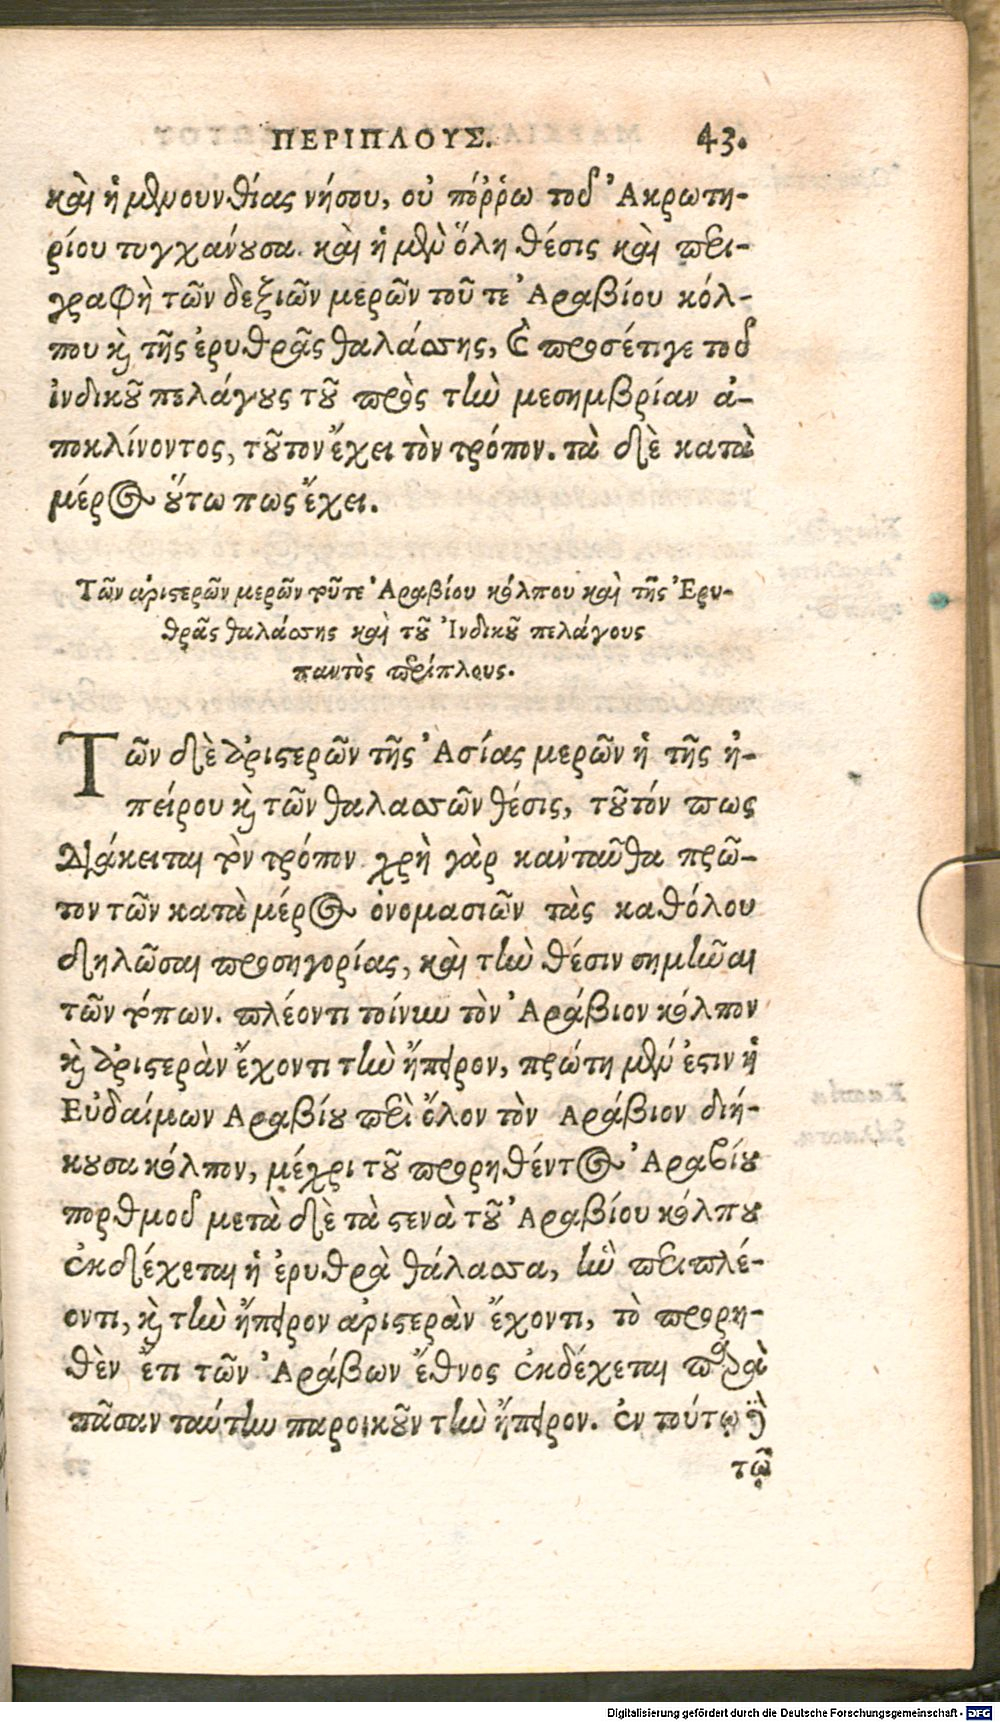 ΠΕΡΙΠΛΟΥΣ. 43.
καὶ ἡ μενουνθίας νήσου, οὐ πόῤῥω τοῦ Ἀκρωτη-
ρίου τυγχάνουσα. καὶ ἡ μὲν ὅλη θέσις καὶ περι-
γραφὴ τῶν δεξιῶν μερῶν τοῦ τε Ἀραβίου κόλ-
που καὶ τῆς ἐρυθρᾶς θαλάσσης, καὶ προσέτιγε τοῦ
ἰνδικοῦ πελάγους τοῦ πρὸς τὴν μεσημβρίαν ἀ-
ποκλίνοντος, τοῦτον ἔχει τὸν τρόπον. τὰ δὲ κατὰ
μέρος οὕτω πως ἔχει.
Τῶν ἀριστερῶν μερῶν τοῦτε Ἀραβίου κόλπου καὶ τῆς Ἐρυ-
θρᾶς θαλάσσης καὶ τοῦ Ἰνδικοῦ πελάγους
παντὸς περίπλους.
Τῶν δὲ ἀριστερῶν τῆς Ἀσίας μερῶν ἡ τῆς ἠ-
πείρου καὶ τῶν θαλασσῶν θέσις, τοῦτόν πως
διάκειται τὸν τρόπον. χρὴ γὰρ κανταῦθα πρῶ-
τον τῶν κατὰ μέρος ὀνομασιῶν τὰς καθόλου
δηλῶσαι προσηγορίας, καὶ τὴν θέσιν σημῆναι
τῶν τόπων. πλέοντι τοίνυν τὸν Ἀράβιον κόλπον
καὶ ἀριστερὰν ἔχοντι τὴν ἤπειρον, πρώτη μέν ἐστιν ἡ
Εὐδαίμων Αραβίου περὶ ὅλον τὸν Αράβιον διή-
κουσα κόλπον, μέχρι τοῦ προρηθέντος Ἀραβίου
πορθμοῦ μετὰ δὲ τὰ στενὰ τοῦ Ἀραβίου κόλπου
ἐκδέχεται ἡ ἐρυθρὰ θάλασσα, ἣν περιπλέ-
οντι, καὶ τὴν ἤπειρον ἀριστερὰν ἔχοντι, τὸ προρη-
θὲν ἔτι τῶν Ἀράβων ἔθνος ἐκδέχεται παρὰ
πᾶσαν ταύτην παροικοῦν τὴν ἤπειρον. ἐν τούτῳ δὲ
τῷ
Digitalisierung gefördert durch die Deutsche Forschungsgemeinschaft - DFG